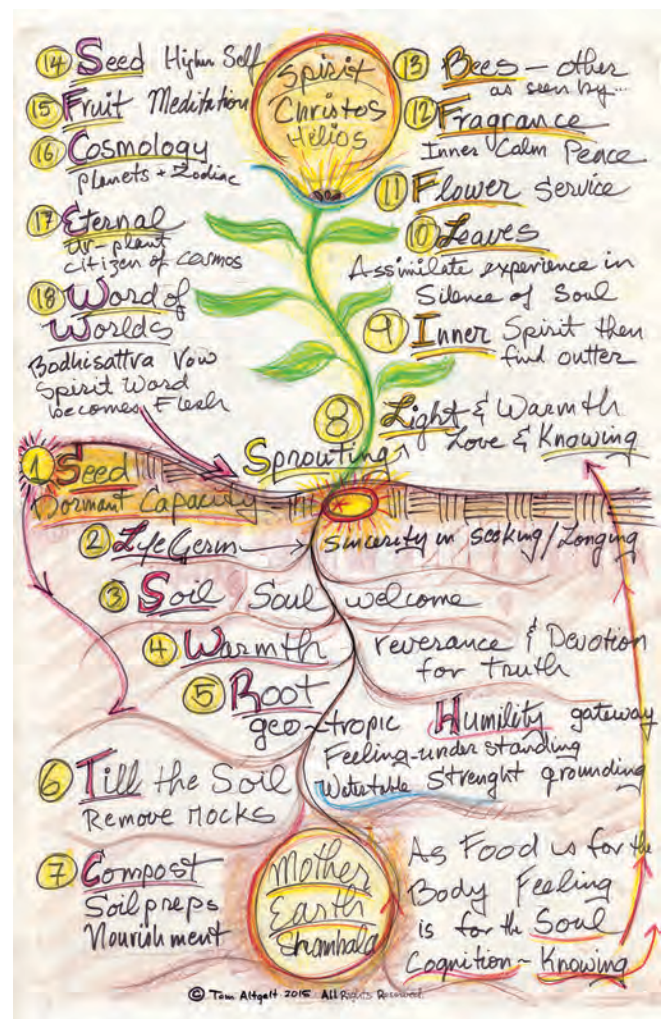 14 Seed Higher Self
15 Fruit Meditation
16 Cosmology
Planets + Zodiac
17 Eternal
Ur-plant
citizen of cosmos
18 Word of
Worlds
Bodhisattva Vow
Spirit Word
becomes Flesh
Spirit
Christos
Helios
13 Bees - other
as seen by...
12 Fragrance
Inner Calm Peace
11 Flower Service
10 Leaves
Assimilate experience in
Silence of Soul
9 Inner Spirit then
find outter
8 Light & Warmth
Love & Knowing
Sprouting
1 Seed
Dormant Capacity
2 Lye Germ
sincerity in seeking/Longing
3 Soil Soul welcome
4 Warmth reverance & Devotion
for Truth
5 Root
geo-tropic Humility gateway
Feeling-understanding
Watertable Strenght grounding
6 Till the Soil
Remove Rocks
7 Compost
Soil preps
Nourishment
Mother
Earth
Shambala
As Food is for the
Body Feeling
is for the Soul
Cognition ~ Knowing
© Tom Altgelt 2015 All Rights Reserved